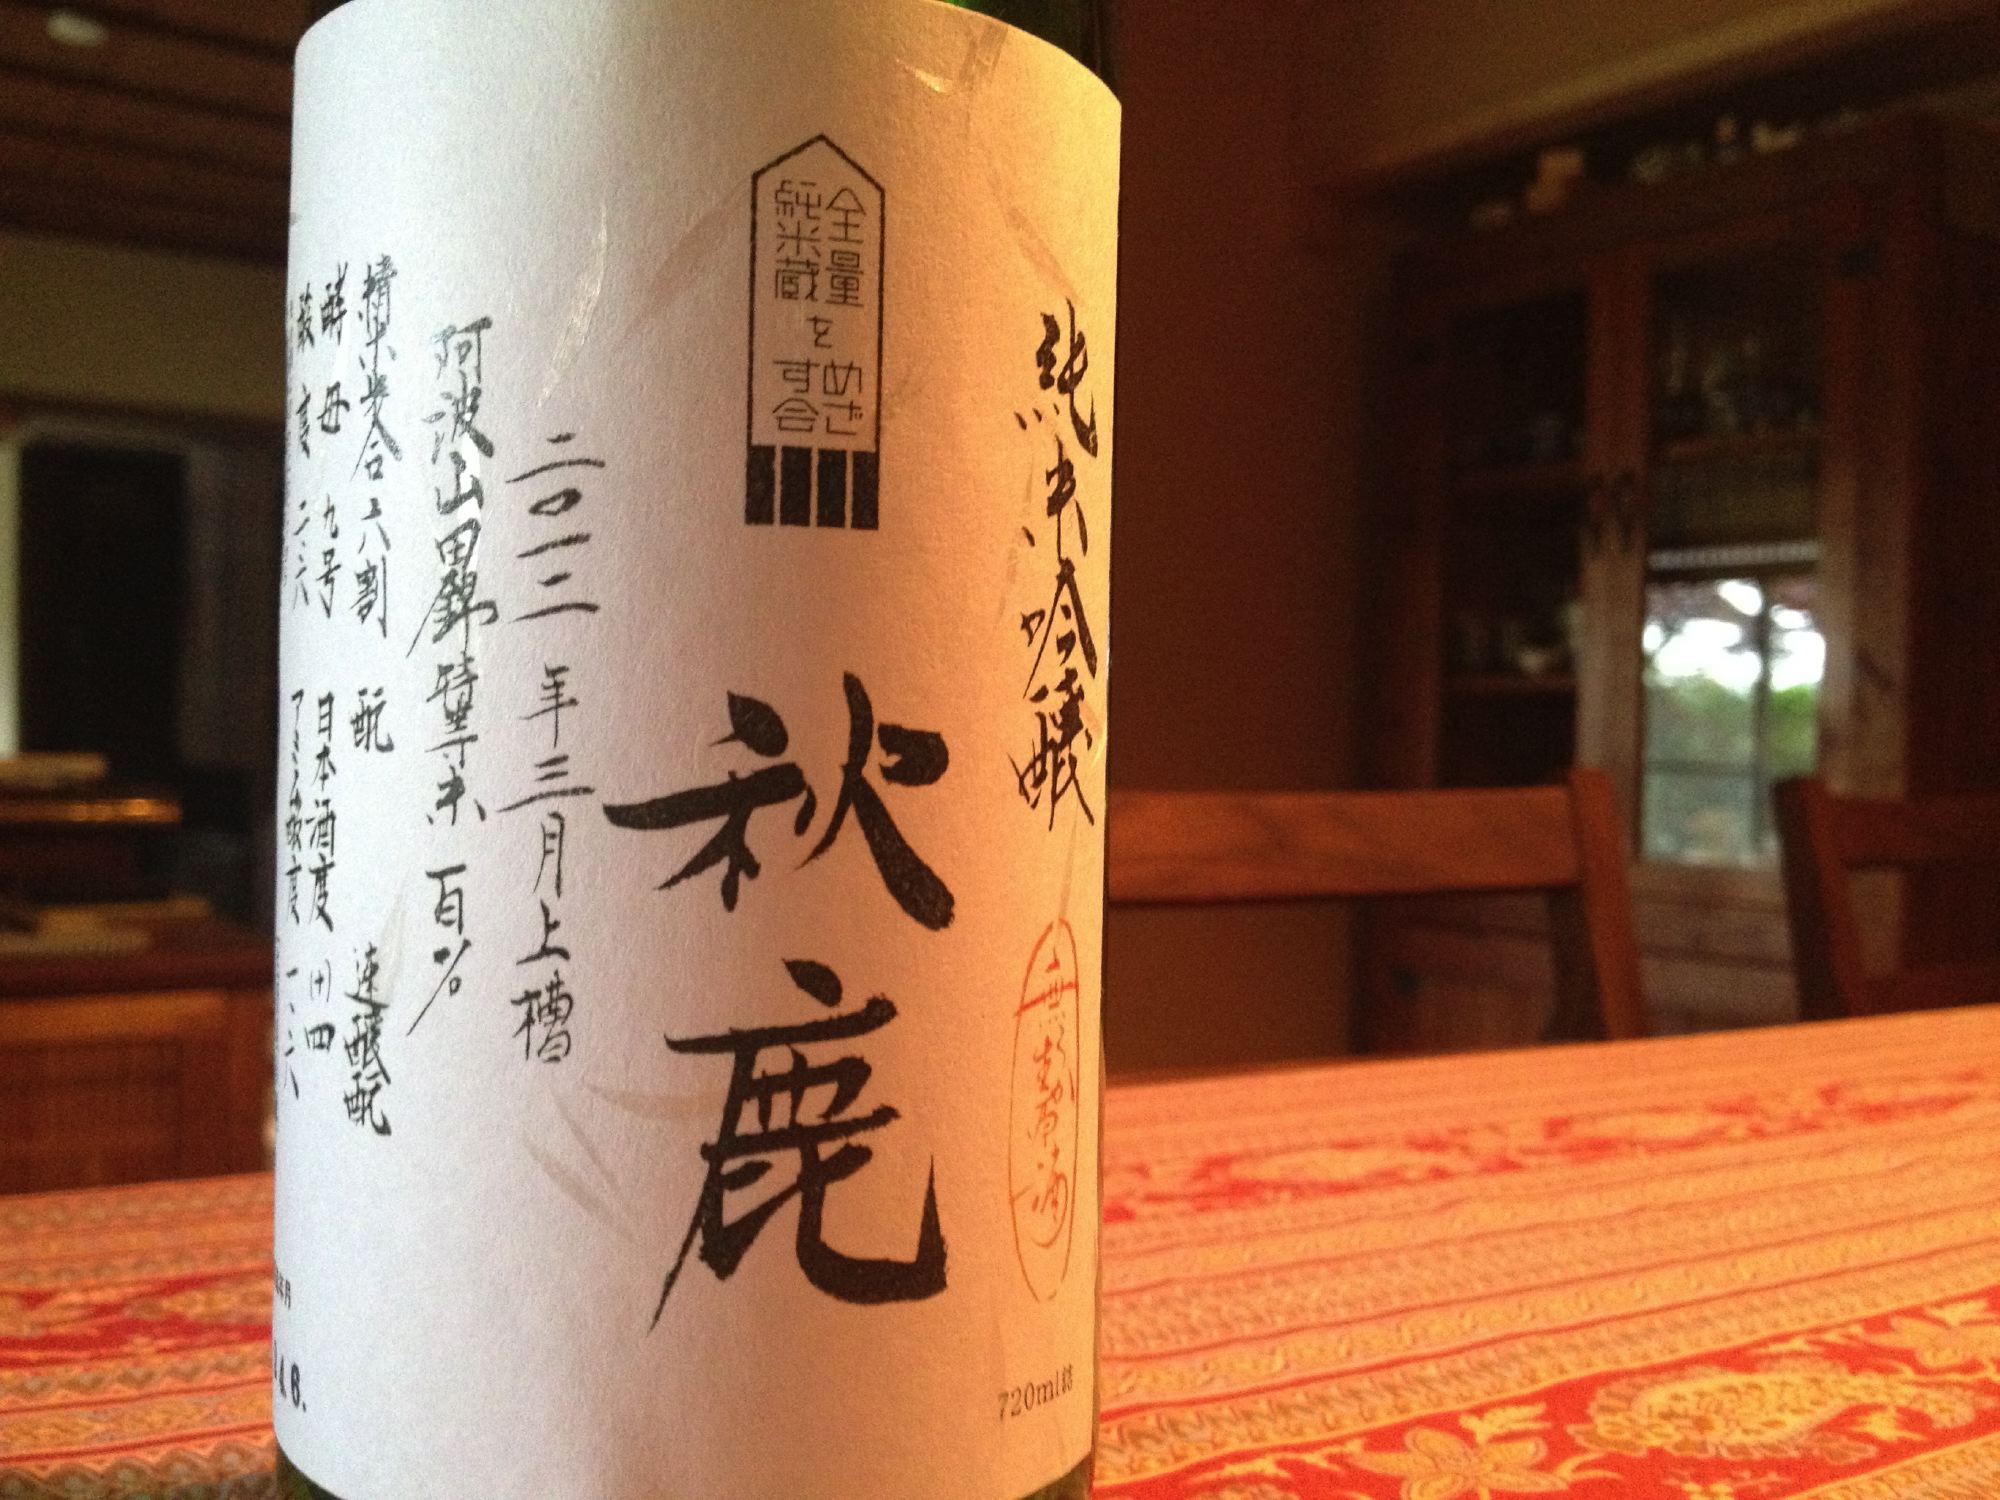 純米吟醸
無濾過原酒
720ml詰
全量をめざす
純米蔵 会
秋鹿
二〇一二年三月上槽
阿波山田錦特等米 百%
精米歩合 六割 酛 速醸酛
酵母 九号 日本酒度 (+)四
酸度 二.二八 アミノ酸度 一.二八
年月
4.6.